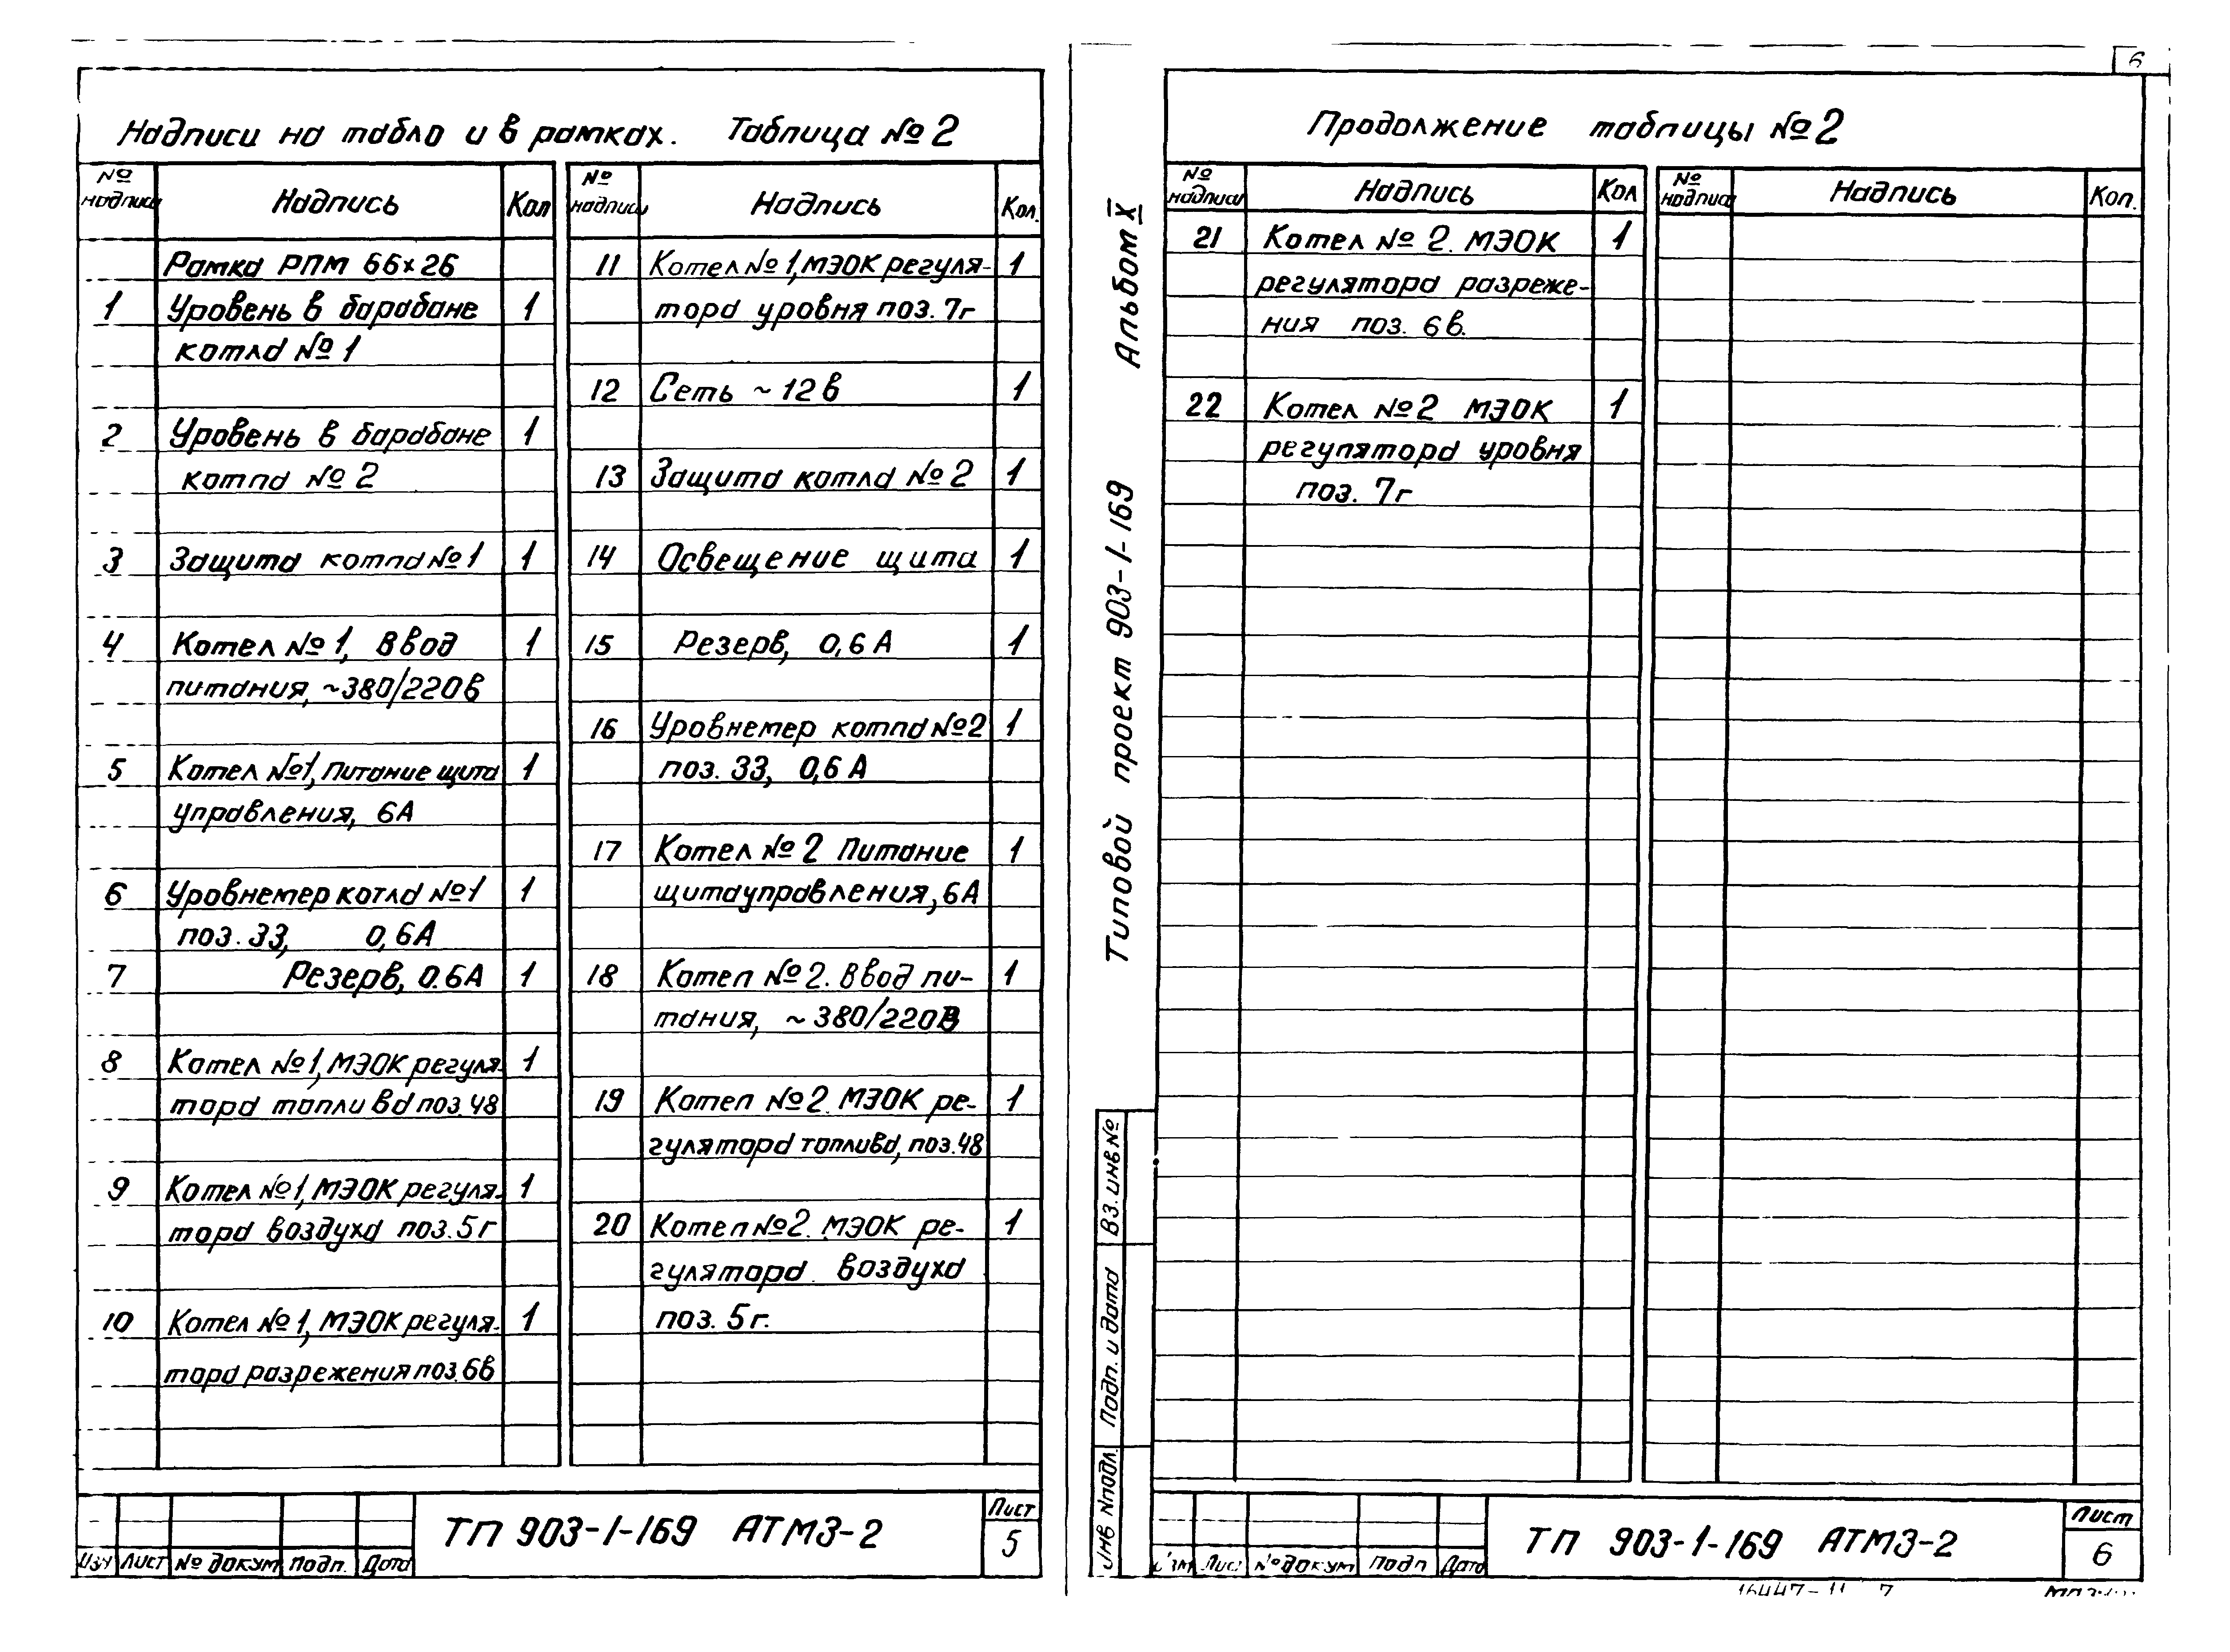 Надписи на табло и в рамках. Таблица № 2
№ надписи Надпись Кол
Рамка РПМ 66×26
1 Уровень в барабане 1
котла № 1
2 Уровень в барабане 1
котла № 2
3 Защита котла № 1 1
4 Котел № 1, Ввод 1
питания, ~380/220в
5 Котел №1, Питание щита 1
управления, 6А
6 Уровнемер котла №1 1
поз. 33, 0,6А
7 Резерв, 0.6А 1
8 Котел №1, МЭОК регуля- 1
тора топлива поз. 48
9 Котел №1, МЭОК регуля- 1
тора воздуха поз. 5г
10 Котел №1, МЭОК регуля- 1
тора разрежения поз. 6в
№ надписи Надпись Кол.
11 Котел № 1, МЭОК регуля- 1
тора уровня поз. 7г
12 Сеть ~ 12в 1
13 Защита котла № 2 1
14 Освещение щита 1
15 Резерв, 0,6А 1
16 Уровнемер котла №2 1
поз. 33, 0,6А
17 Котел № 2 Питание 1
щита управления, 6А
18 Котел № 2. Ввод пи- 1
тания, ~ 380/220В
19 Котел № 2. МЭОК ре- 1
гулятора топлива, поз. 48
20 Котел №2. МЭОК ре- 1
гулятора воздуха
поз. 5г.
Изм Лист № докум Подп. Дата
ТП 903-1-169 АТМ3-2
Лист
5
6
Альбом X
Типовой проект 903-1-169
Вз. инв №
Подп. и дата
Инв № подл.
Продолжение таблицы № 2
№ надписи Надпись Кол
21 Котел № 2. МЭОК 1
регулятора разреже-
ния поз. 6в.
22 Котел № 2 МЭОК 1
регулятора уровня
поз. 7г
№ надписи Надпись Кол.
Изм Лист № докум Подп Дата
ТП 903-1-169 АТМ3-2
Лист
6
16447-11 7